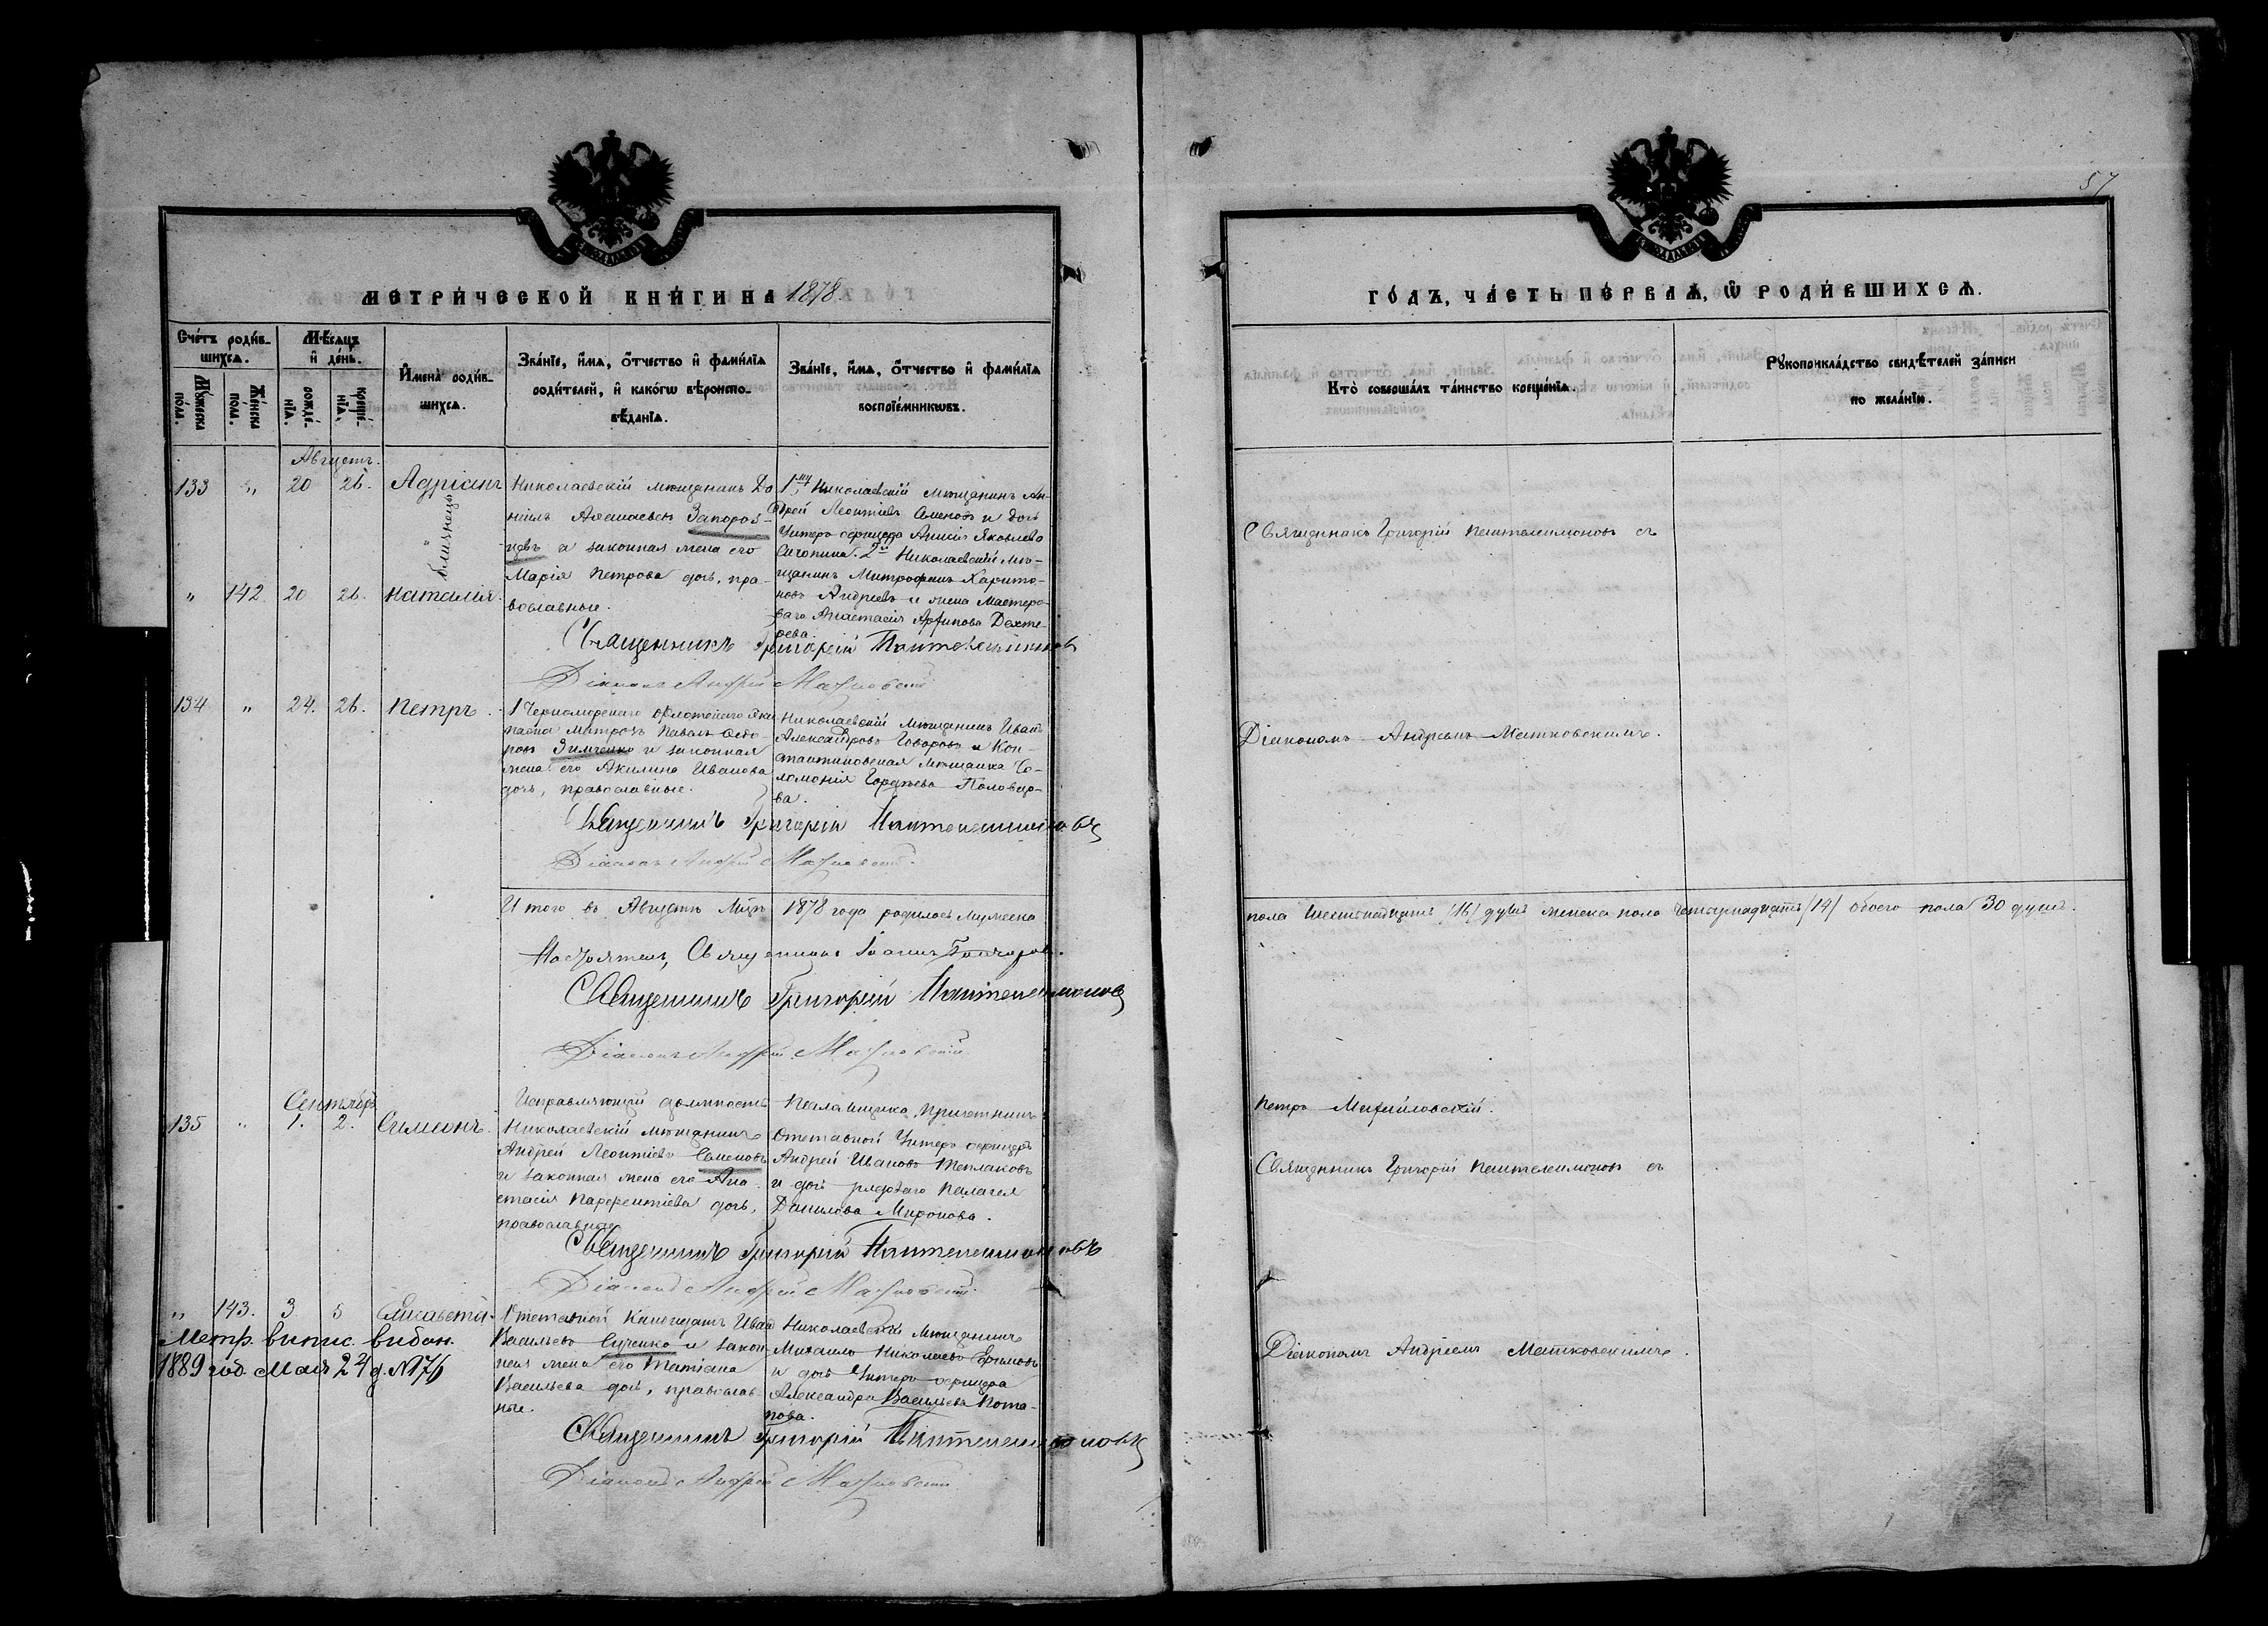 МЕТРИ́ЧЕСКОЙ КНИ́ГИ НА 1878.
Сче́тъ роди́в-
шихсѧ.
Мѣ́сѧцъ
и҆ де́нь.
Мꙋ́жеска по́ла.
Же́нска пола.
рожде́-
нїѧ.
креще́-
нїѧ.
И҆мена̀ роди́в-
шихсѧ.
Зва́нїе, и҆́мѧ, ѻ҆́тчество и҆ фами́лїѧ
роди́телей, и҆ како́гѡ вѣроиспо-
вѣ́данїѧ.
Зва́нїе, и҆́мѧ, ѻ҆́тчество и҆ фами́лїѧ
воспрїе́мникѡвъ.
Августъ.
133 " 20 26. Адріанъ
близнецы
" 142. 20 26. Наталія.
Николаевскій мѣщанинъ Да
ніилъ Запорож-
цевъ и законная жена его
Марія Петрова дочь, пра-
вославные.
Николаевскій мѣщанинъ Ан-
дрей Леонтіевъ Семеновъ и дочь
Унтеръ офицера Яковлева
2й Николаевскій мѣ-
щанинъ Митрофанъ Харито-
новъ Андреевъ и жена Мастеро-
ваго Анастасія Архипова Дехте-
рева.
Священникъ Григорій Пантелеимоновъ
Діаконъ Андрей Матковскій
134 " 24. 26. Петръ.
1 Черноморскаго флотскаго эки
пажа матрозъ Павелъ Ѳедо-
ровъ Зимченко и законная
жена его Акилина Иванова
дочь, православные.
Николаевскій мѣщанинъ Иванъ
Александровъ Говоровъ и Кон-
стантиновская мѣщанка Со-
ломонія Гордѣева Половцо-
ва.
Священникъ Григорій Пантелеимоновъ
Діаконъ Андрей Матковскій.
Итого въ Августѣ мцѣ 1878 года родилось мужеска
Настоятель, Священникъ Іоаннъ
Священникъ Григорій Пантелеимоновъ
Діаконъ Андрей Матковскій
Сентябрь
135 " 1. 2. Симеонъ.
Исправляющій должность Псаломщика, Причетникъ
Николаевскій мѣщанинъ
Андрей Леонтіевъ Семеновъ
и законная жена его Ана
стасія Парфентіева дочь,
православные
Отставной Унтеръ офицеръ
Андрей Ивановъ Теплаковъ
и дочь рядоваго Пелагея
Данилова Миронова.
Священникъ Григорій Пантелеимоновъ
Діаконъ Андрей Матковскій.
" 143. 3 5 Елисавета.
Метр. випис. видан.
1889 год. Мая 24 д. №176
Отставной Иван
Васильевъ Сученко и закон
ная жена его Татіана
Васильева дочь, православ-
ные.
Николаевскій мѣщанинъ
Михаилъ Николаевъ Ефимовъ
и дочь Унтеръ офицера
Александра Васильева Пота-
пова.
Священникъ Григорій Пантелеимоновъ
Діаконъ Андрей Матковскій
57
ГО́ДЪ, ЧА́СТЬ ПЕ́РВАѦ, Ѽ РОДИ́ВШИХСѦ.
Кто̀ соверша́лъ та́инство креще́нїѧ.
Рꙋкоприкла́дство свидѣ́телей за́писи
по жела́нїю.
Священникъ Григорій Пантелеимоновъ съ
Діакономъ Андреемъ Матковскимъ.
пола шестнадцать /16/ душъ женска пола четырнадцать /14/ обоего пола 30 душъ.
Петръ Михайловскій.
Священникъ Григорій Пантелеимоновъ съ
Діакономъ Андреемъ Матковскимъ.